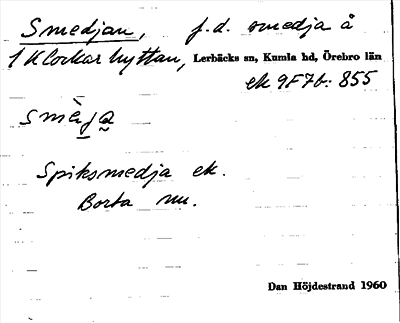 Smedjan, f.d. smedja å
1 Klockarhyttan, Lerbäcks sn, Kumla hd, Örebro län
ek 9F7b: 855
smèja
Spiksmedja ek.
Borta nu.
Dan Höjdestrand 1960